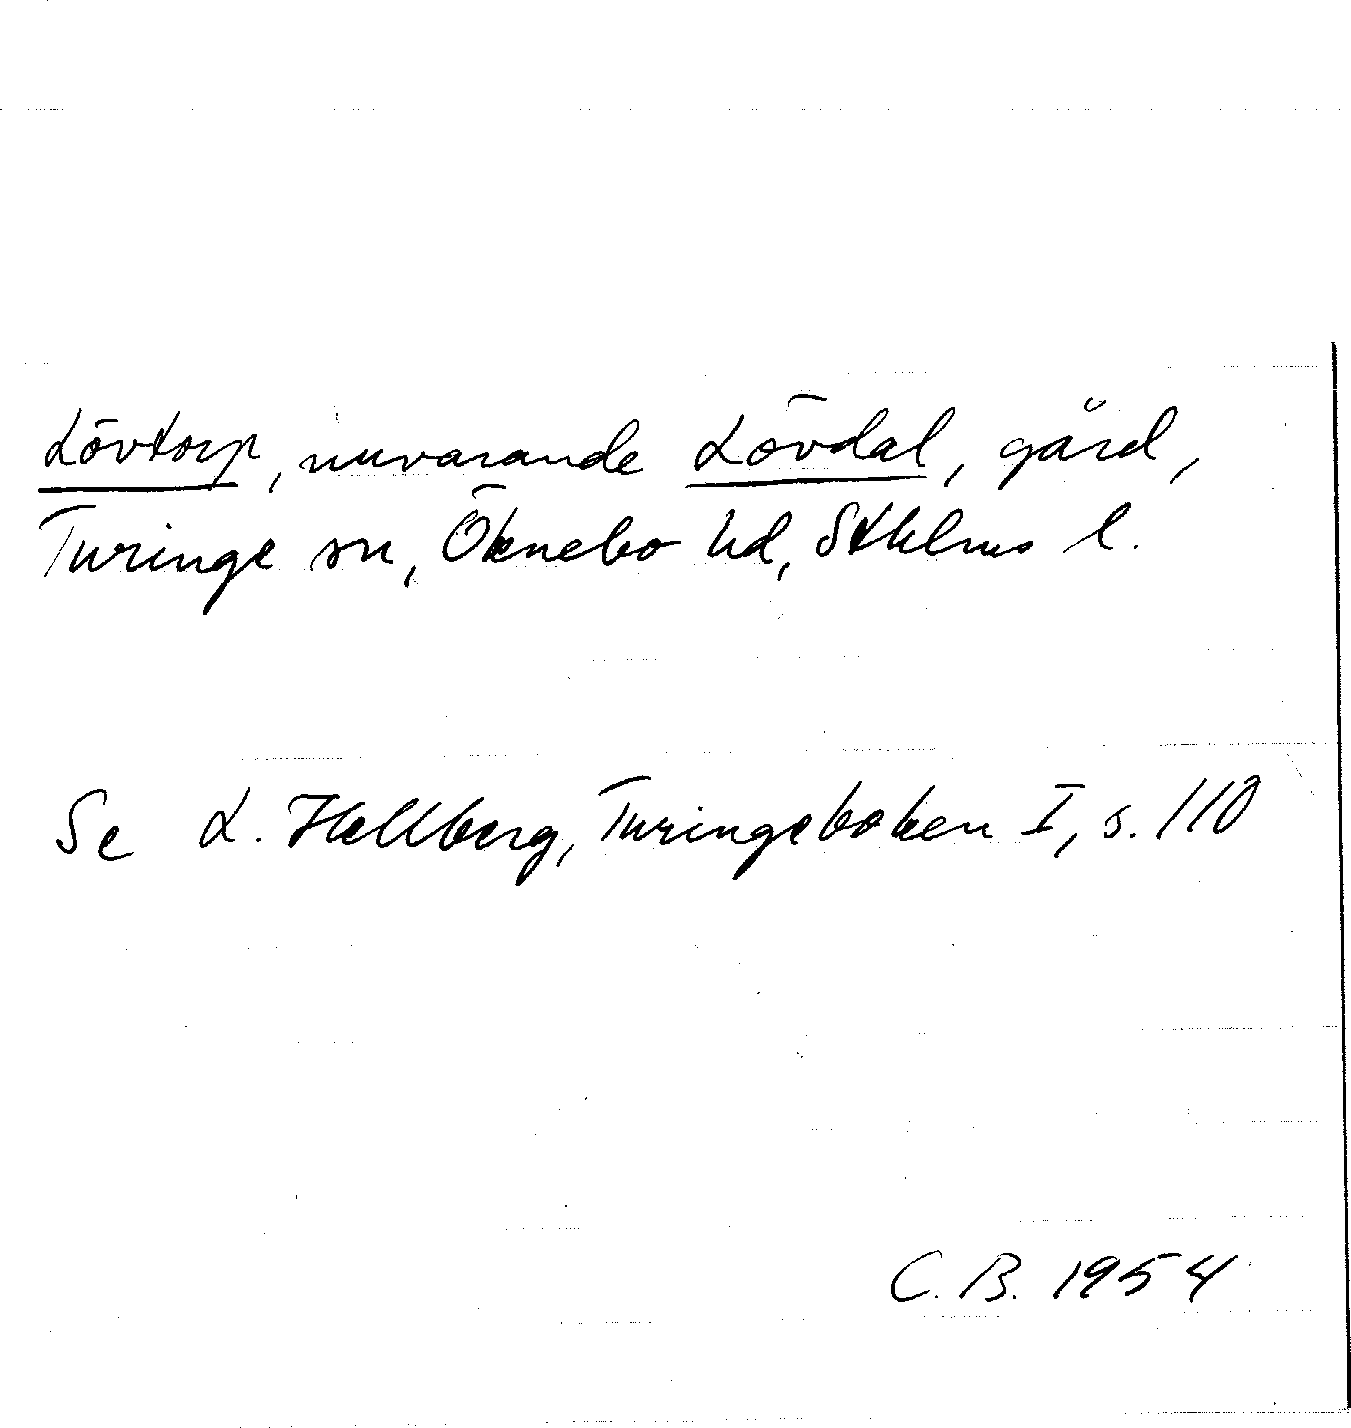 Lövtorp, nuvarande Lövdal, gård,
Turinge sn, Öknebo hd, Sthlms l.
Se L. Hellberg, Turingeboken I, s. 110
C. B. 1954